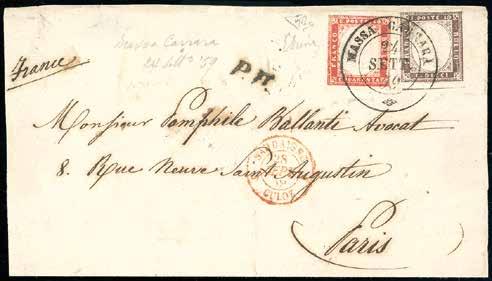 Massa Carrara
24 sett° 59
France
P.D.
FRANCO
C. POSTE
BOLLO
MASSA CARRARA
24
SETT
59
C. POSTE
Monsieur Pamphile Ballanti Avocat
8. Rue Neuve Saint Augustin
28
CULOZ
Paris